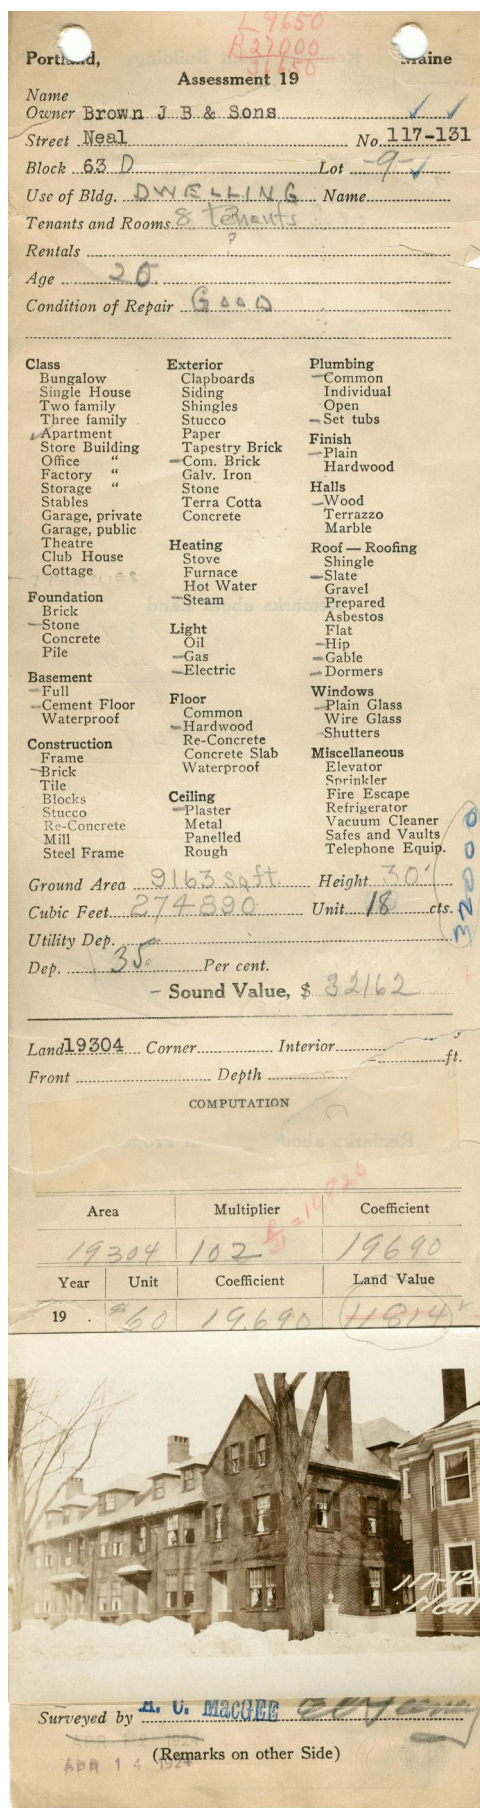 L 9650
B 27000
36650
Portland, Maine
Assessment 19
Name
Owner Brown J B & Sons
Street Neal No. 117-131
Block 63 D Lot -9-
Use of Bldg. DWELLING Name
Tenants and Rooms 8 tenants
?
Rentals
Age 25
Condition of Repair GOOD
Class
Bungalow
Single House
Two family
Three family
Apartment
Store Building
Office "
Factory "
Storage "
Stables
Garage, private
Garage, public
Theatre
Club House
Cottage
Foundation
Brick
Stone
Concrete
Pile
Basement
Full
Cement Floor
Waterproof
Construction
Frame
Brick
Tile
Blocks
Stucco
Re-Concrete
Mill
Steel Frame
Exterior
Clapboards
Siding
Shingles
Stucco
Paper
Tapestry Brick
Com. Brick
Galv. Iron
Stone
Terra Cotta
Concrete
Heating
Stove
Furnace
Hot Water
Steam
Light
Oil
Gas
Electric
Floor
Common
Hardwood
Re-Concrete
Concrete Slab
Waterproof
Ceiling
Plaster
Metal
Panelled
Rough
Plumbing
Common
Individual
Open
Set tubs
Finish
Plain
Hardwood
Halls
Wood
Terrazzo
Marble
Roof — Roofing
Shingle
Slate
Gravel
Prepared
Asbestos
Flat
Hip
Gable
Dormers
Windows
Plain Glass
Wire Glass
Shutters
Miscellaneous
Elevator
Sprinkler
Fire Escape
Refrigerator
Vacuum Cleaner
Safes and Vaults
Telephone Equip.
32000
Ground Area 9163 Sq ft Height 30'
Cubic Feet 274890 Unit 18 cts.
Utility Dep.
Dep. 35 Per cent.
Sound Value, $ 32162
Land 19304 Corner Interior
ft.
Front Depth
COMPUTATION
Area Multiplier Coefficient
19304 102 19690
Year Unit Coefficient Land Value
19 . $60 19,690 11814
Neal
Surveyed by A. C. MacGEE
APR 12 1924
APR 14 1924
(Remarks on other Side)